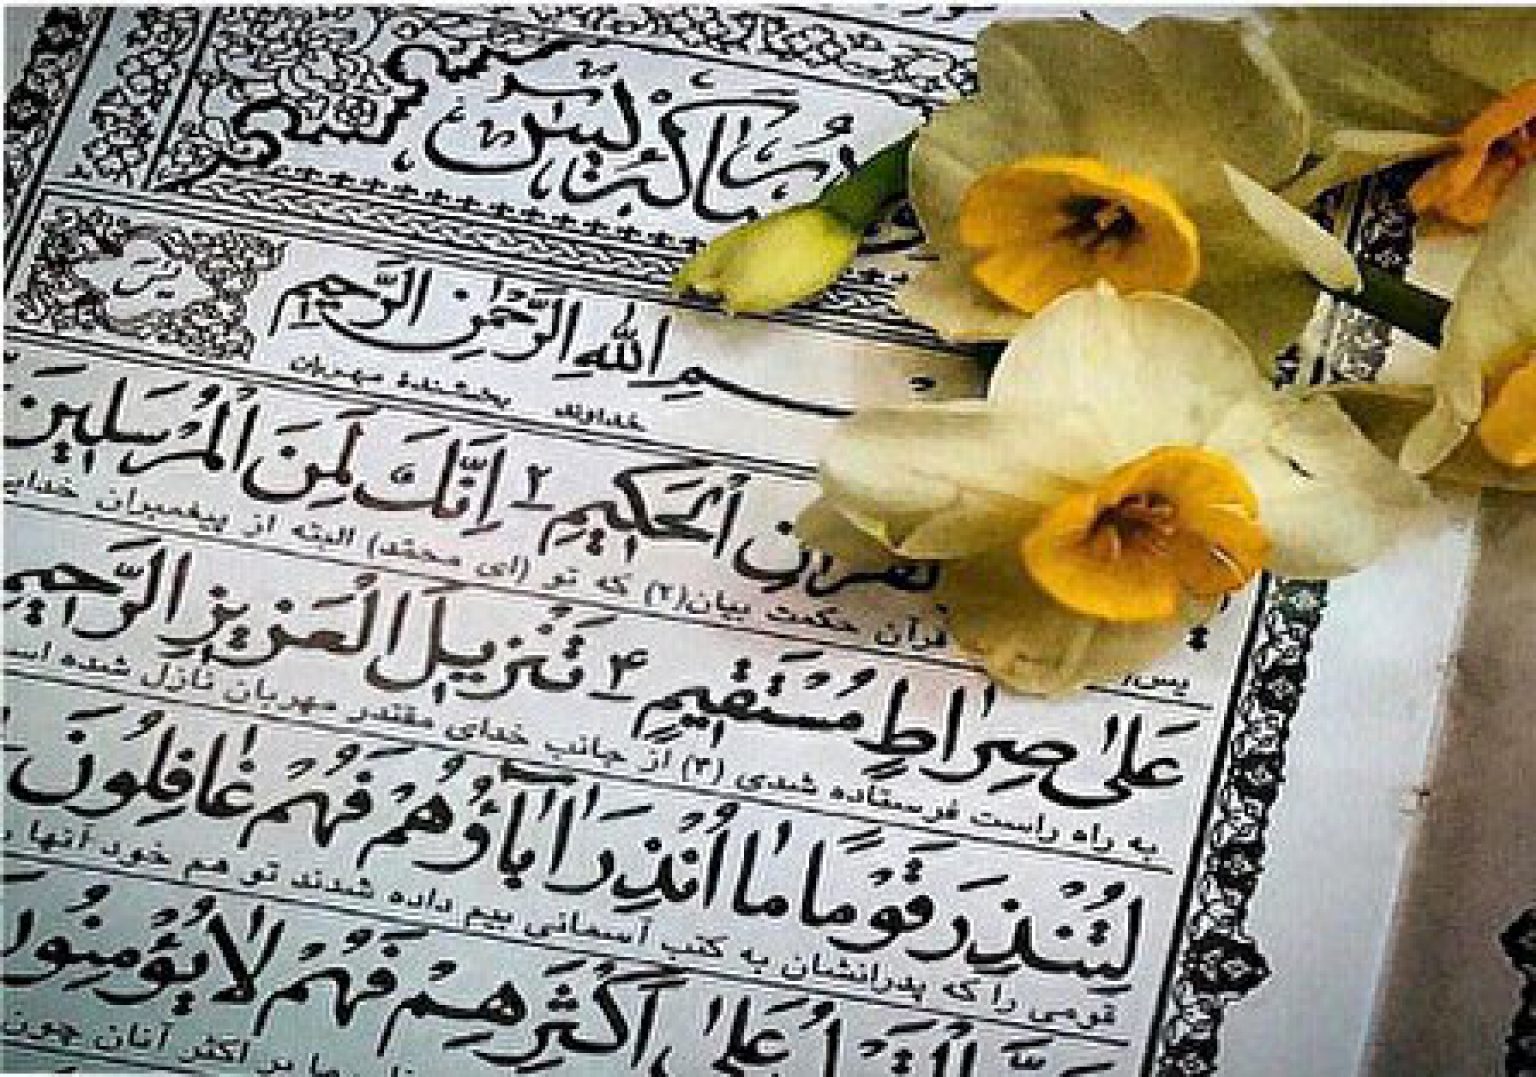 یس
بسم اللهِ الرَّحْمٰنِ الرَّحیمِ
خداوند بخشندهٔ مهربان
الْحَکیمِ ۲ اِنَّكَ لَمِنَ الْمُرْسَلینَ
قرآن حکمت بیان (۲) که تو (ای محمّد) البته از پیغمبران خدایی
عَلیٰ صِراطٍ مُسْتَقیمٍ ۴ تَنْزیلَ الْعَزیزِ الرَّحیمِ
به راه راست فرستاده شدی (۴) از جانب خدای مقتدر مهربان نازل شده
لِتُنْذِرَ قَوْمًا ما اُنْذِرَ آباؤُهُمْ فَهُمْ غافِلُونَ
قومی را که پدرانشان به کتب آسمانی بیم داده شدند تو هم خود آنها
عَلیٰ اَکْثَرِهِمْ فَهُمْ لا یُؤْمِنُونَ
بر اکثر آنان چون